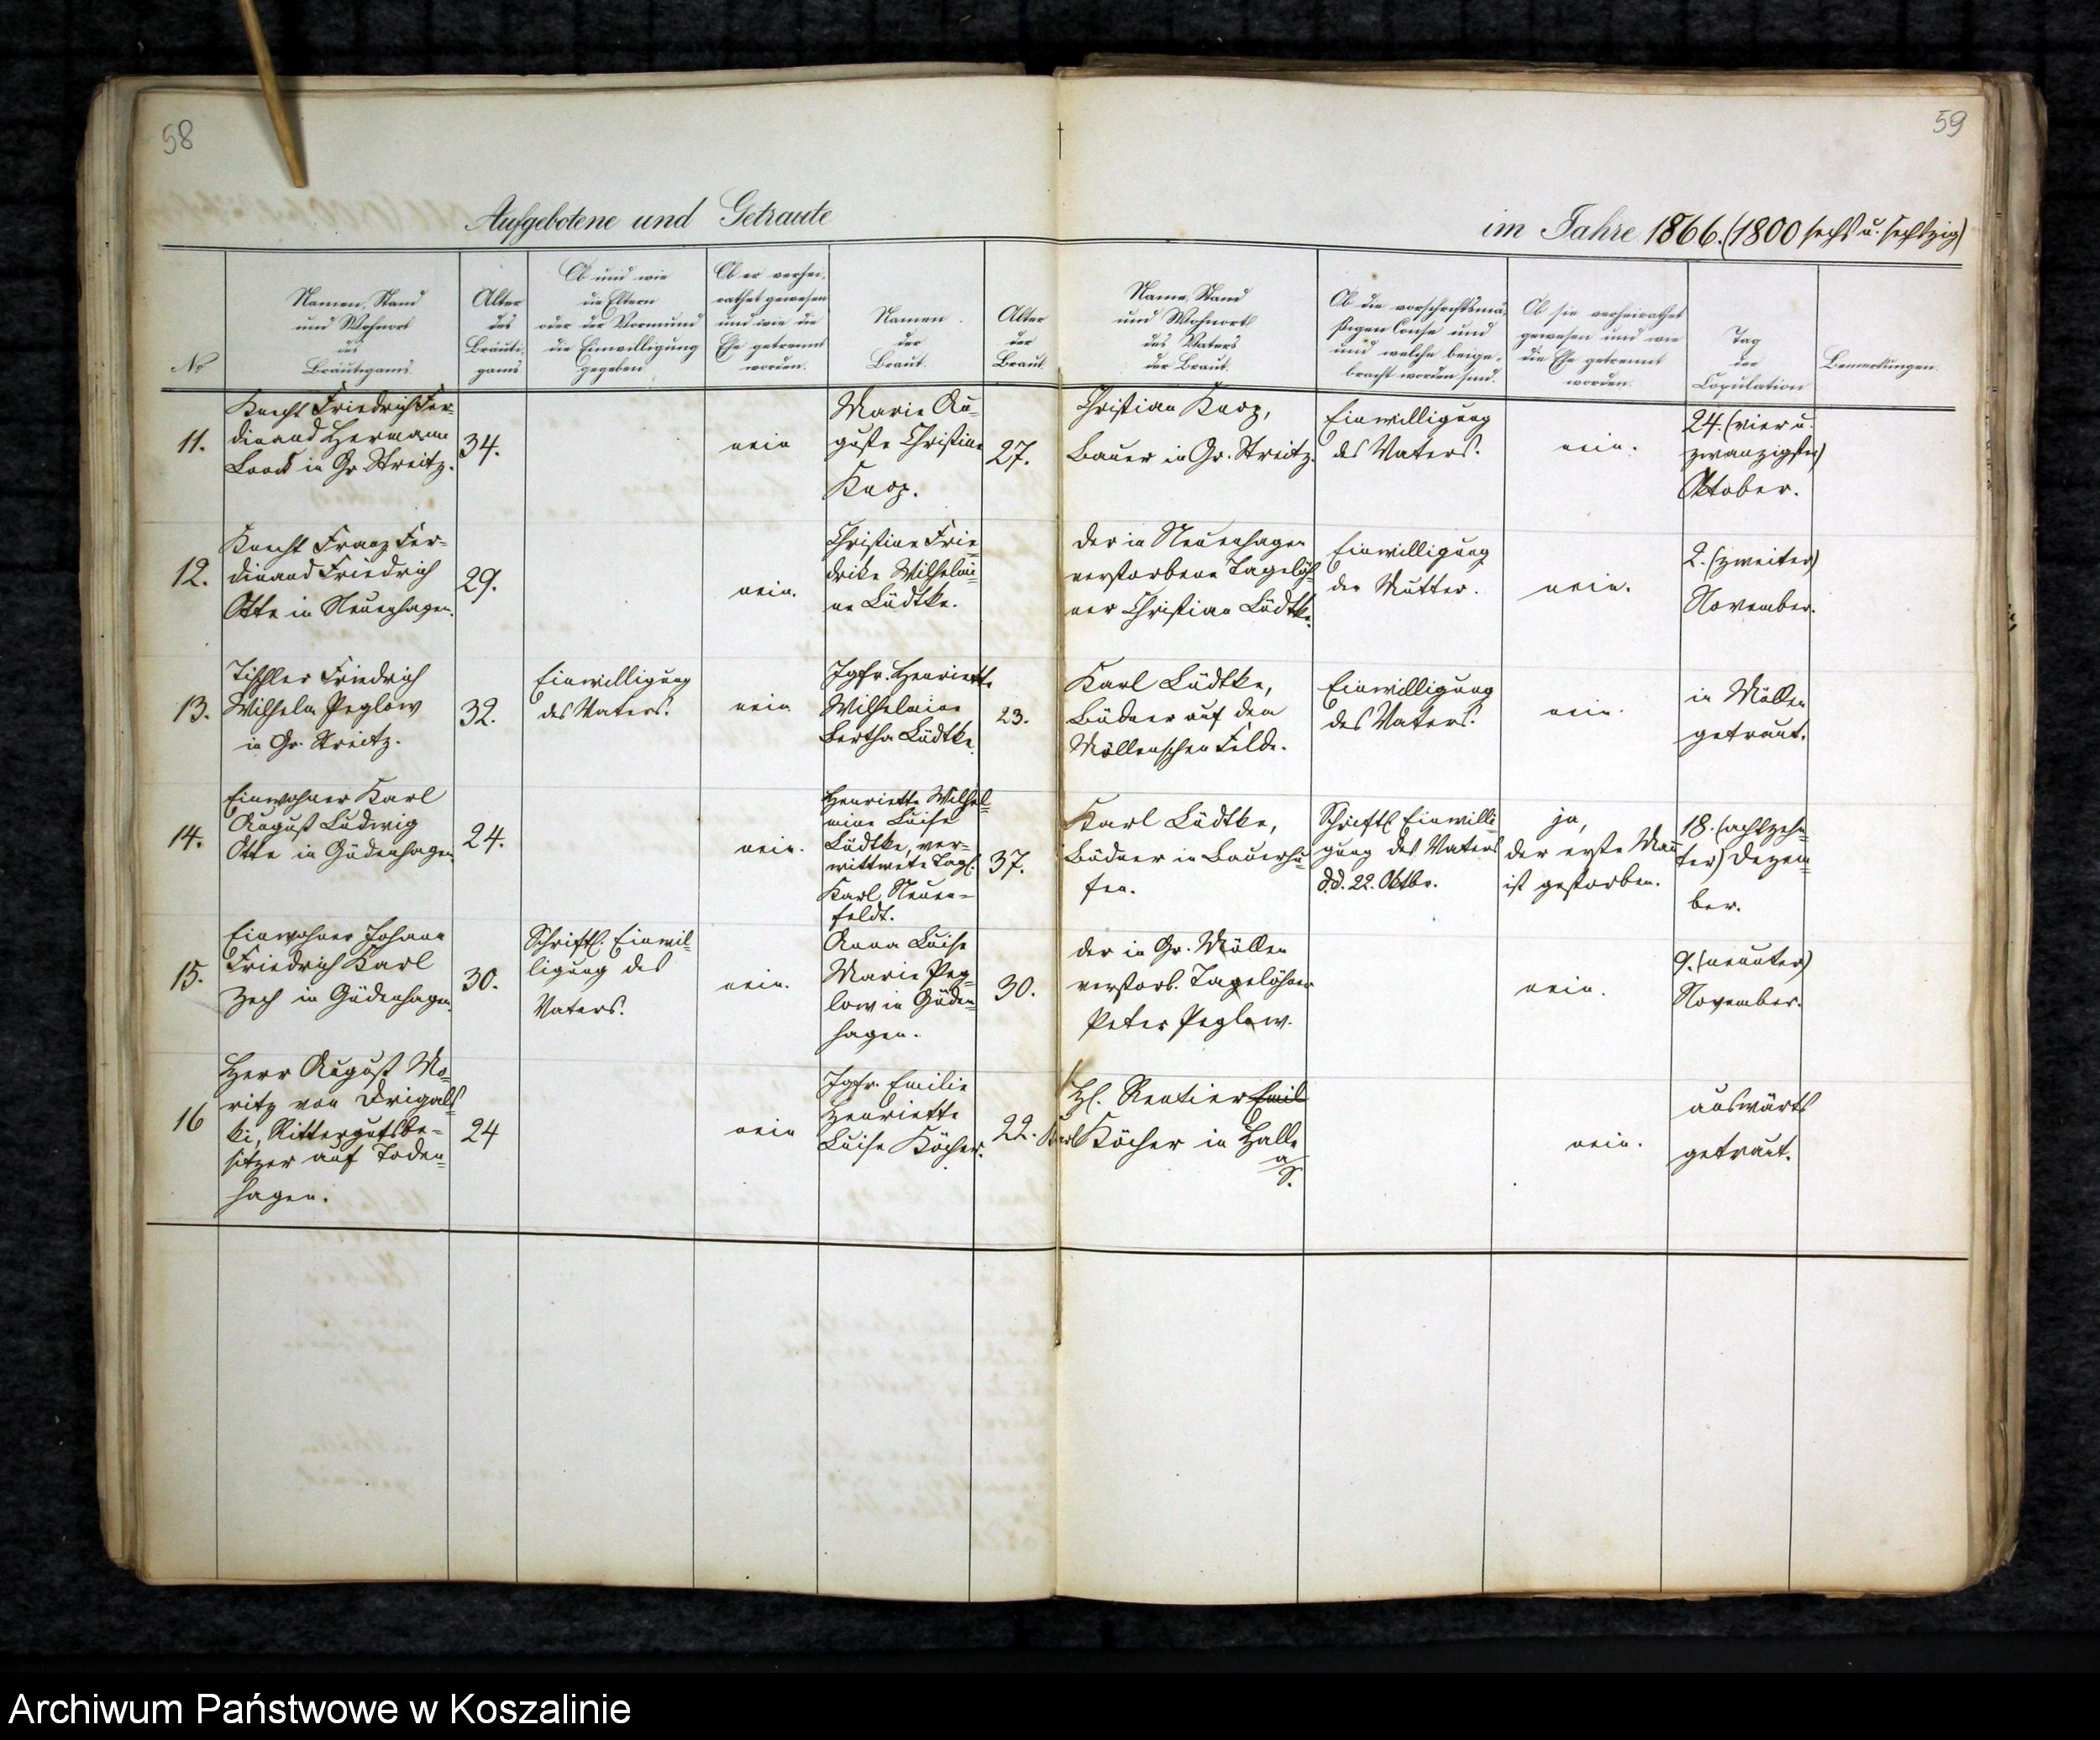 58
59
Aufgebotene und Getraute
im Jahre 1866. (1800 sechs u. sechszig)
No
Namen, Stand
und Wohnort
des
Bräutigams
Alter
des
Bräuti-
gams
Ob und wie
die Eltern
oder der Vormund
die Einwilligung
gegeben
Ob er verhei-
rathet gewesen
und wie die
Ehe getrennt
worden.
Namen
der
Braut.
Alter
der
Braut
Name, Stand
und Wohnort
des Vaters
der Braut.
Ob die vorschriftsmä-
ßigen Conse und
und welche beige-
bracht worden sind.
Ob sie verheirathet
gewesen und wie
die Ehe getrennt
worden.
Tag
der
Copulation
Bemerkungen.
11.
Knecht Friedrich Fer-
dinand Hermann
in Gr. Streitz.
34.
nein
Marie Au-
guste Christine
Knop.
27.
Christian Knop,
Bauer in Gr. Streitz.
Einwilligung
des Vaters.
nein.
24. (vier u.
zwanzigster)
Oktober.
12.
Knecht Franz Fer-
dinand Friedrich
Otto in Neuenhagen.
29.
nein.
Christine Frie-
drike Wilhelmi-
ne Lüdtke.
der in Neuenhagen
verstorbene Tagelöh-
ner Christian Lüdtke.
Einwilligung
der Mutter.
nein.
2. (zweiter)
November.
13.
Tischler Friedrich
Wilhelm Peglow
in Gr. Streitz.
32.
Einwilligung
des Vaters.
nein
Jgfr. Henriette
Wilhelmine
Bertha Lüdtke.
23.
Karl Lüdtke,
Büdner auf dem
Möllenschen Felde.
Einwilligung
des Vaters.
nein.
in Möllen
getraut.
14.
Einwohner Karl
August Ludwig
Otto in Güdenhagen.
24.
nein.
Henriette Wilhel-
mine Luise
Lüdtke, ver-
wittwete Tagl.
Karl Neuen-
feldt.
37.
Karl Lüdtke,
Büdner in Bauerhu-
fen.
Schriftl. Einwilli-
gung des Vaters
d.d. 22. Oktbr.
ja,
der erste Mann
ist gestorben.
18. (achtzehn-
ter) Dezem-
ber.
15.
Einwohner Johann
Friedrich Karl
Zech in Güdenhagen.
30.
Schriftl. Einwil-
ligung des
Vaters.
nein.
Anna Luise
Marie Peg-
low in Güden-
hagen.
30.
der in Gr. Möllen
verstorb. Tagelöhner
Peter Peglow.
nein.
9. (neunter)
November.
16
Herr August Mo-
ritz von Drigals-
ki, Rittergutsbe-
sitzer auf Toden-
hagen.
24
nein
Jgfr. Emilie
Henriette
Luise Köcher.
22.
H. Rentier Emil
Karl Köcher in Halle
a/S.
nein.
auswärts
getraut.
Archiwum Państwowe w Koszalinie